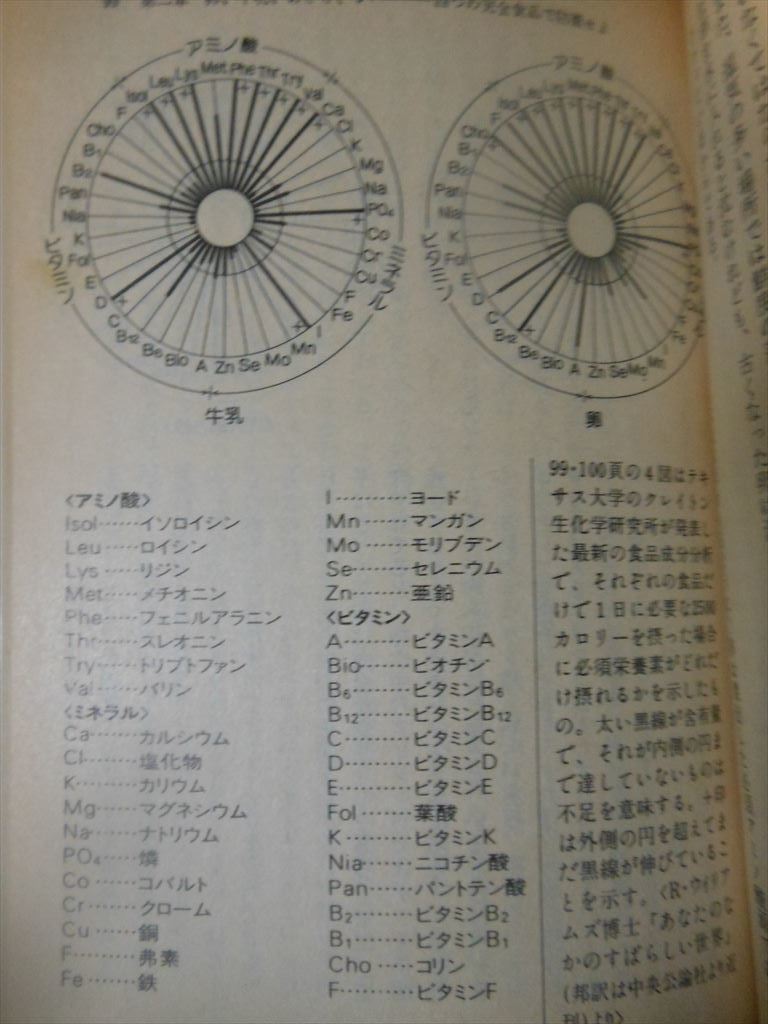 アミノ酸
Isol
Leu
Lys
Met
Phe
Thr
Try
Val
Ca
Cl
K
Mg
Na
PO₄
Co
Cr
Cu
F
Fe
I
Mn
Mo
Se
Zn
A
Bio
B₆
B₁₂
C
D
E
Fol
K
Nia
Pan
B₂
B₁
Cho
F
ミネラル
ビタミン
牛乳
アミノ酸
Isol
Leu
Lys
Mn
Mo
Se
Zn
A
Bio
B₆
B₁₂
C
D
E
Fol
K
Nia
Pan
B₂
B₁
Cho
F
ビタミン
卵
〈アミノ酸〉
Isol……イソロイシン
Leu……ロイシン
Lys……リジン
Met……メチオニン
Phe……フェニルアラニン
Thr……スレオニン
Try……トリプトファン
Val……バリン
〈ミネラル〉
Ca……カルシウム
Cl……塩化物
K………カリウム
Mg……マグネシウム
Na……ナトリウム
PO₄……燐
Co……コバルト
Cr……クローム
Cu……銅
F………弗素
Fe……鉄
I…………ヨード
Mn……マンガン
Mo……モリブデン
Se……セレニウム
Zn……亜鉛
〈ビタミン〉
A………ビタミンA
Bio……ビオチン
B₆………ビタミンB₆
B₁₂……ビタミンB₁₂
C………ビタミンC
D………ビタミンD
E………ビタミンE
Fol……葉酸
K………ビタミンK
Nia……ニコチン酸
Pan……パントテン酸
B₂………ビタミンB₂
B₁………ビタミンB₁
Cho……コリン
F…………ビタミンF
99・100頁の4図はテキ
サス大学のクレイトン
生化学研究所が発表し
た最新の食品成分分析
で、それぞれの食品だ
けで1日に必要な2500
カロリーを摂った場合
に必須栄養素がどれだ
け摂れるかを示したも
の。太い黒線が含有量
で、それが内側の円ま
で達していないものは
不足を意味する。+印
は外側の円を超えてま
だ黒線が伸びているこ
とを示す。〈R・ウイリア
ムズ博士「あなたのな
かのすばらしい世界」
(邦訳は中央公論社より近
刊)より〉